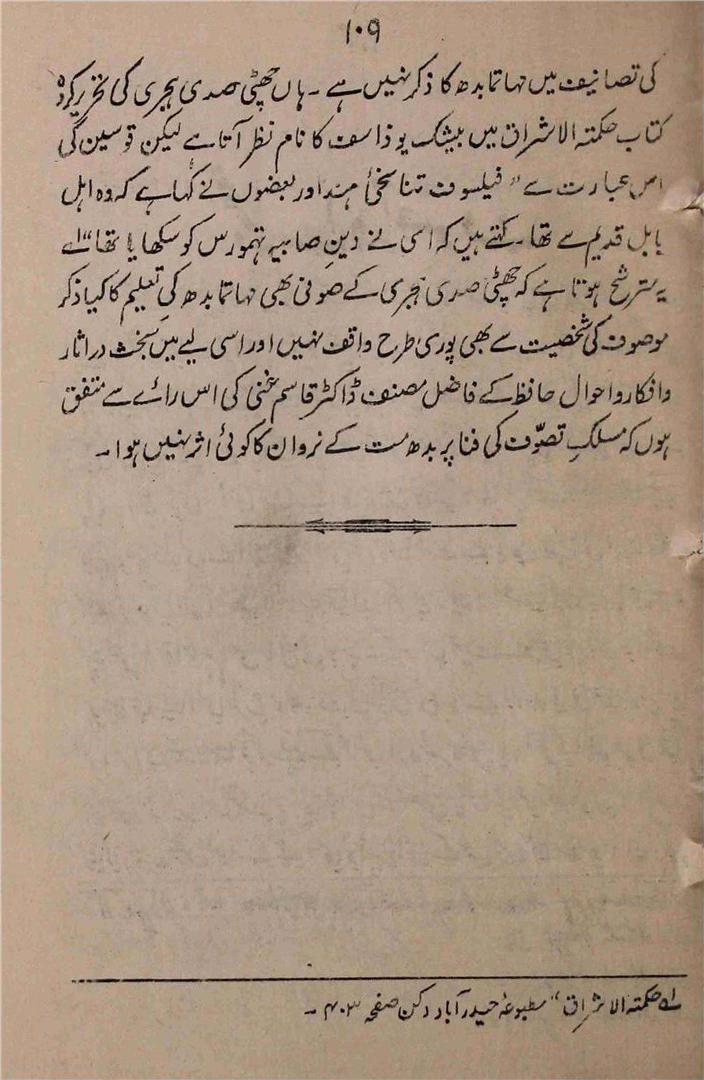 ۱۰۹
کی تصانیف میں مہاتما بدھ کا ذکر نہیں ہے ۔ ہاں چھٹی صدی ہجری کی تحریر کردہ
کتاب حکمتہ الاشراق میں بیشک یوذاسف کا نام نظر آتا ہے لیکن قوسین کی
اس عبارت سے ”فیلسوف تناسخیٔ ہند اور بعضوں نے کہا ہے کہ وہ اہل
بابل قدیم سے تھا۔ کہتے ہیں کہ اسی نے دینِ صابیہ تہمورس کو سکھایا تھا“ لہ
یہ مترشح ہوتا ہے کہ چھٹی صدی ہجری کے صوفی بھی مہاتما بدھ کی تعلیم کا کیا ذکر
موصوف کی شخصیت سے بھی پوری طرح واقف نہیں اور اسی لیے میں بحث در آثار
و افکار و احوال حافظ کے فاضل مصنف ڈاکٹر قاسم غنی کی اس رائے سے متفق
ہوں کہ مسلکِ تصوّف کی فنا پر بدھ مت کے نروان کا کوئی اثر نہیں ہوا۔
لہ حکمتہ الاشراق“ مطبوعۂ حیدرآباد دکن صفحہ ۴۰۳ ۔